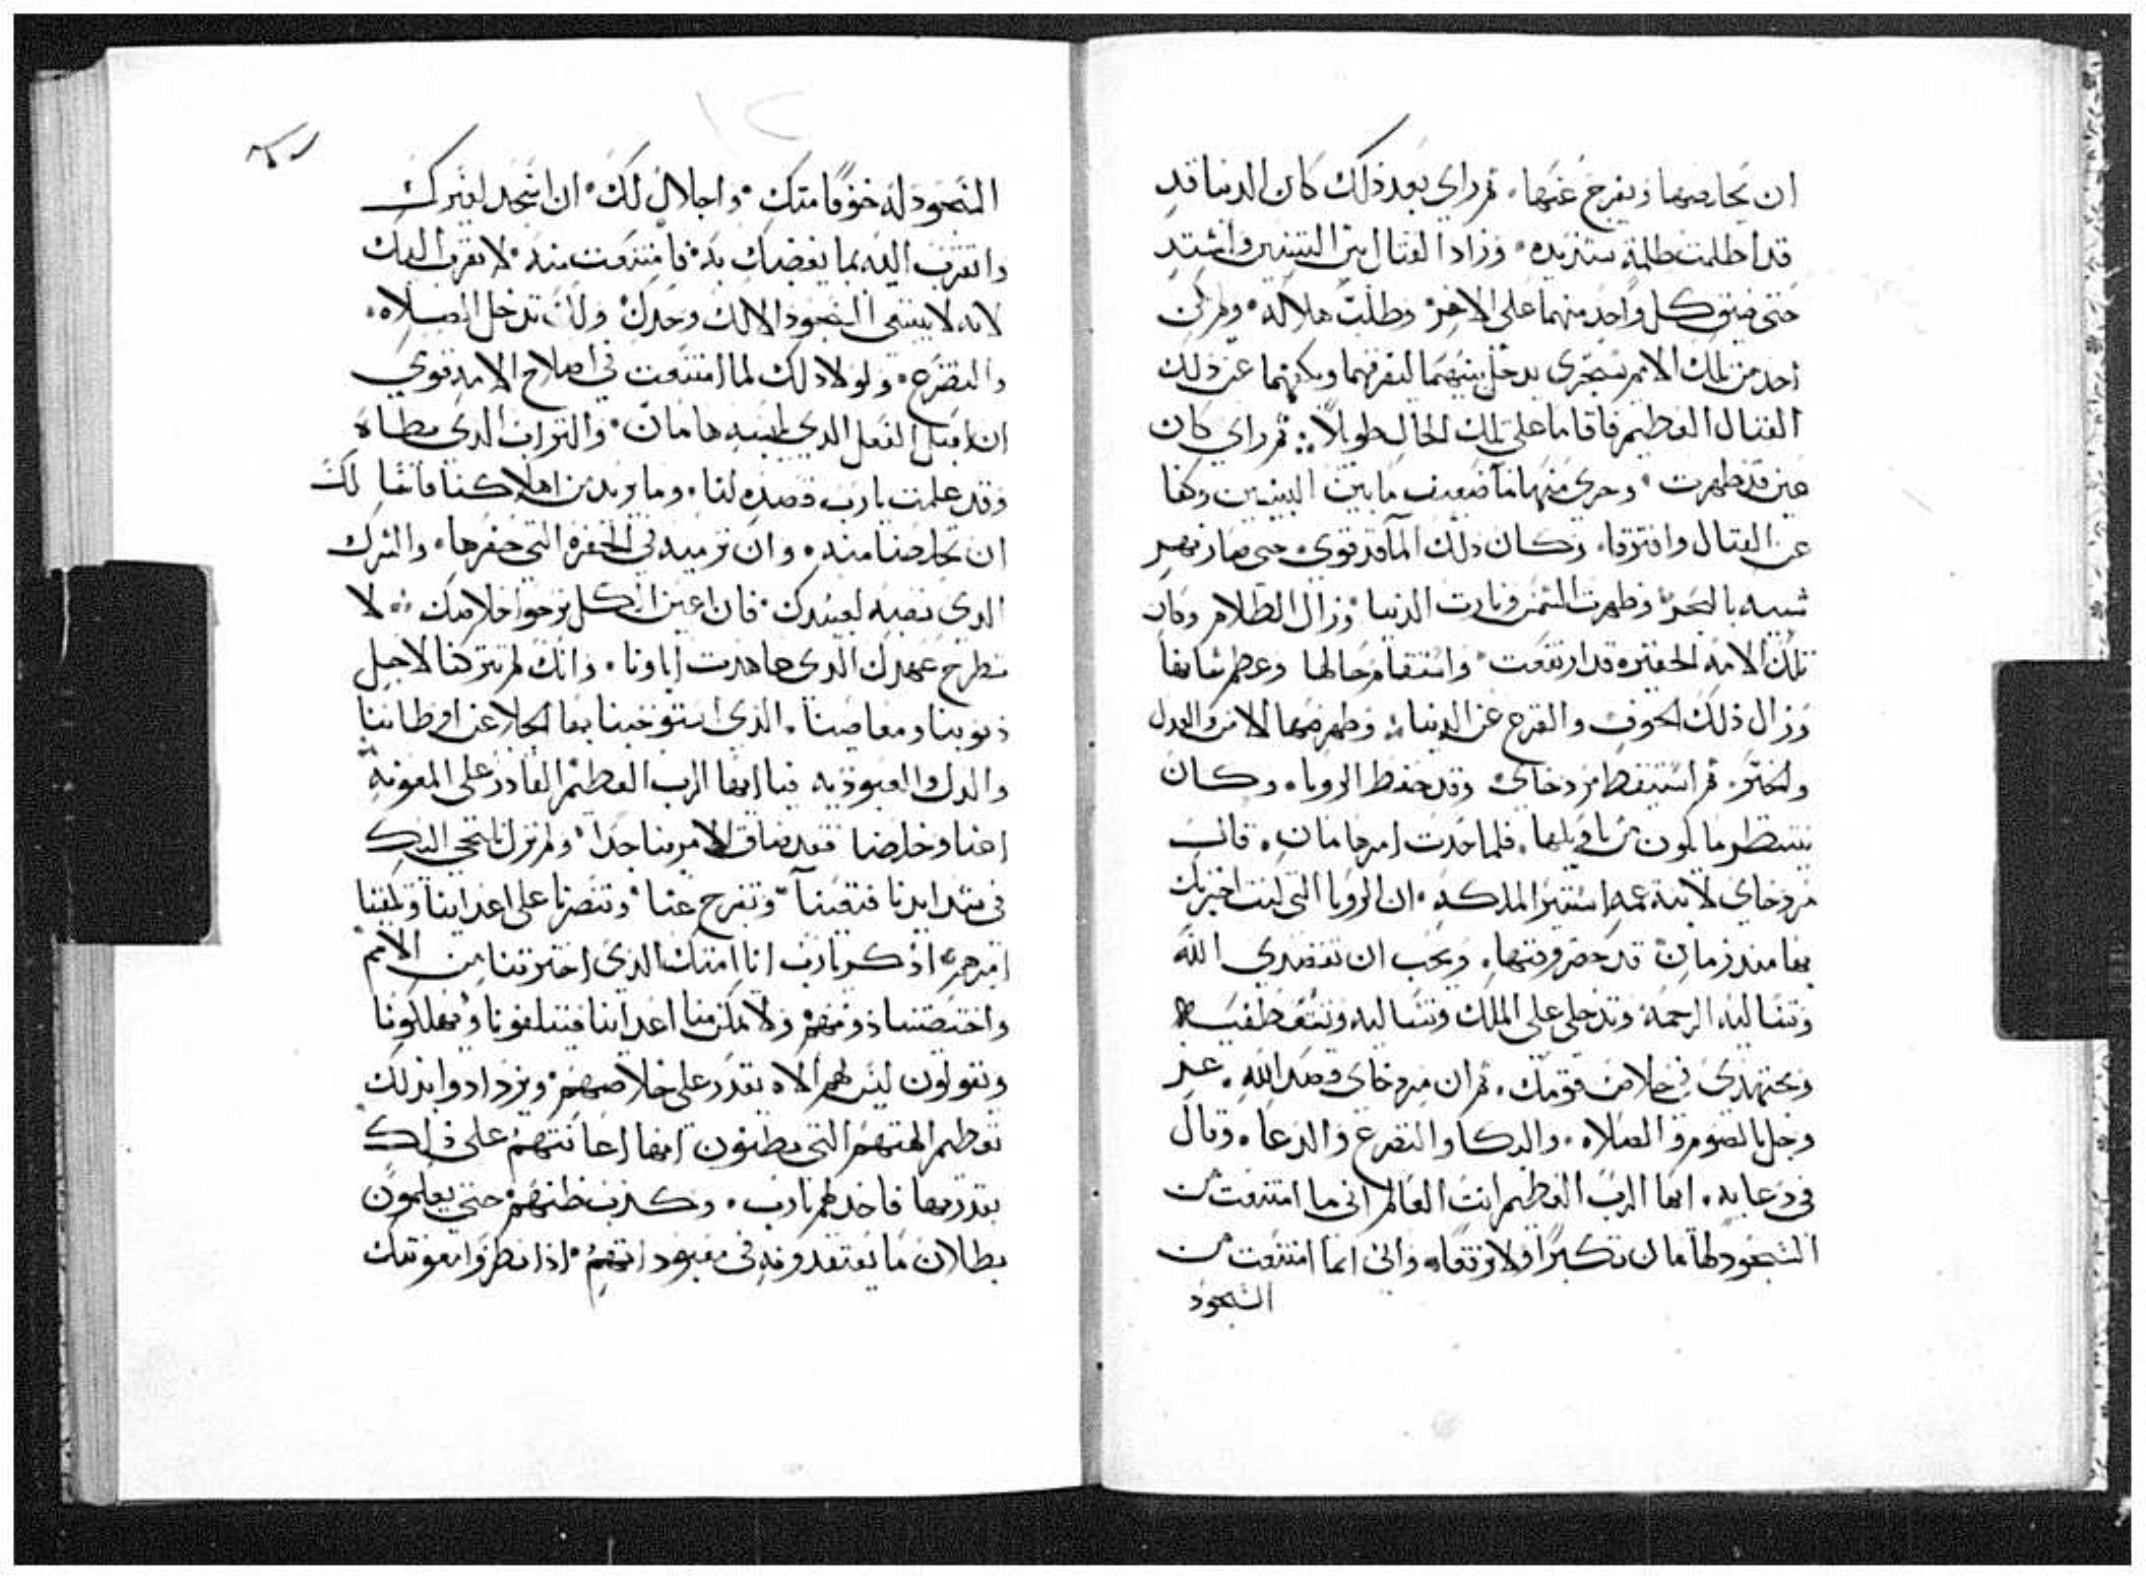 ان يخلصها ويفرج عنها. ثم راى بعد ذلك كان الدنيا قد
قد اظلمت ظلمة شديده. وزاد القتال بين التنينين واشتد
حتى ضيق كل واحد منهما على الاخر وطلب هلاكه. ولم يكن
احد من تلك الامم يجترى يدخل بينهما ليفرقهما ويكفهما عن ذلك
القتال العظيم فاقاما على تلك الحال طويلا. ثم راى كان
عين قد ظهرت. وجرى منها ما ضعيف ما بين التنينين وكفا
عن القتال وافترقا. وكان ذلك الما قد قوى حتى صار نهر
شبيه بالبحر وظهرت الشمس ونارت الدنيا وزال الظلام وكان
تلك الامة الحقيره قد ارتفعت واستقام حالها وعظم شانها
وزال ذلك الخوف والفزع عن الدنيا. وظهر فيها الامن والعدل
والخير. ثم استيقظ مردخاى وقد حفظ الرويا. وكان
ينتظر ما يكون من تاويلها. فلما حدث امر هامان. قال
مردخاى لابنة عمه استير الملكه. ان الرويا التى كنت اخبرتك
بها منذ زمان قد حضر وقتها. ويجب ان تقصدى الله
وتساليه الرحمة وتدخلى على الملك وتساليه
وتجتهدى فى خلاص قومك. ثم ان مردخاى قصد الله. عز
وجل بالصوم والصلاه. والبكا والتضرع والدعا. وقال
فى دعايه. ايها الرب العظيم انت العالم انى ما امتنعت من
السجود لهامان تكبرا ولا ترفعا. وانى انما امتنعت من
السجود
السجود له خوفا منك. واجلال لك. ان اسجد لغيرك
واتقرب اليه بما يغضبك به. فامتنعت منه. لا بقرب اليك
لانه لا ينبغى السجود الا لك وحدك ولك تدخل الصلاه.
والتضرع. ولولا ذلك لما امتنعت فى اصلاح الامه قوتى
ان اقبل النعل الذى لبسه هامان. والتراب الذى يطاه
وقد علمت يارب قصده لنا. وما يريد من اهلاكنا فاسا لك
ان تخلصنا منه. وان ترميه فى الحفره التى حفرها. والشرك
الذى نصبه لعبيدك. فان اعين الكل ترجوا خلاصك. لا
تطرح عهدك الذى عاهدت اباونا. وانك لم تتركنا لاجل
ذنوبنا ومعاصينا. الذى استوجبنا بها الجلا عن اوطاننا
والذل والعبوديه فيا ايها الرب العظيم القادر على المعونة
اعنا وخلصنا فقد ضاق الامر بنا جدا. ولم نزل نلتجى اليك
فى شدايدنا فتغيثنا وتفرج عنا وتنصرنا على اعداينا وتكفينا
امرهم. اذكر يارب انا امتك الذى اخترتنا من الامم
واختصتنا دونهم ولا تمكن منا اعداينا فيتلفونا ويهلكونا
ويقولون ليس لهم الاه يقدر على خلاصهم ويزدادوا بذلك
تعظيم الهتهم التى يظنون انها اعانتهم على ذلك
بقدرتها فاخذلهم يارب. وكذب ظنهم حتى يعلمون
بطلان ما يعتقدونه فى معبوداتهم. اذا نظروا معونتك